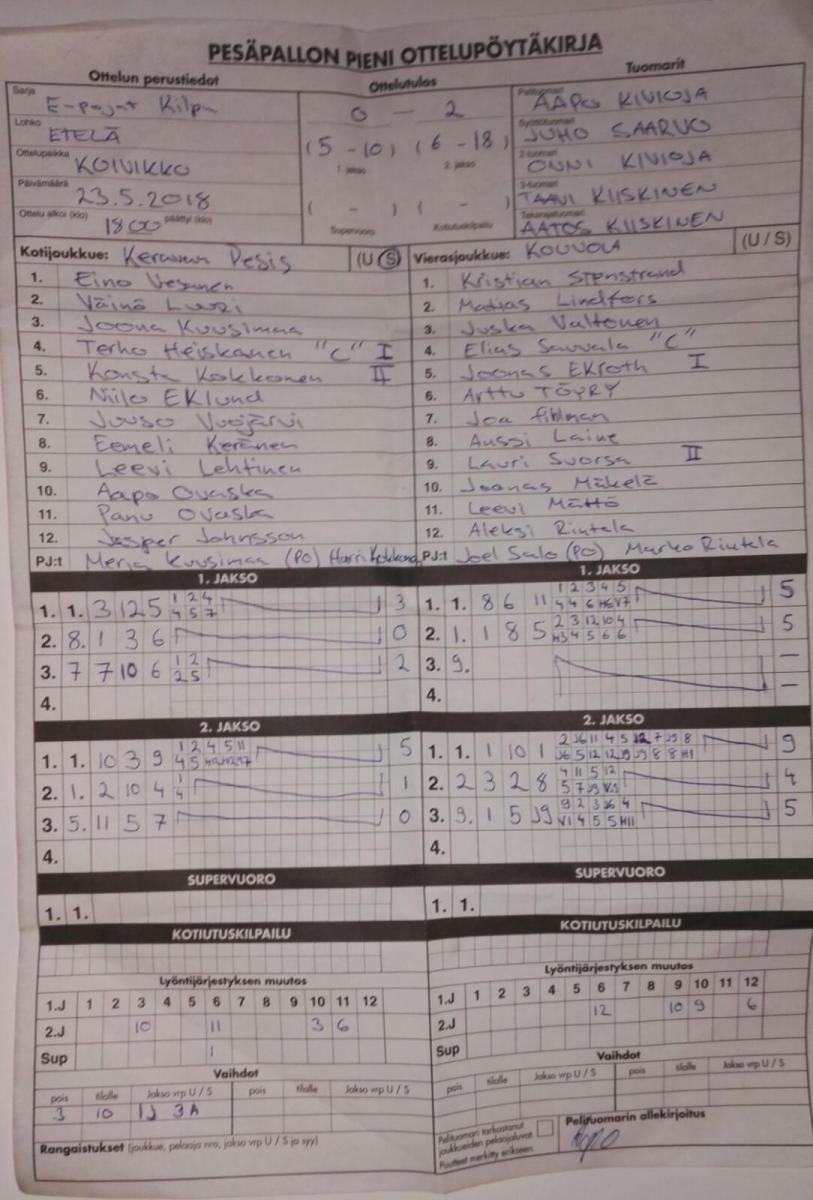 PESÄPALLON PIENI OTTELUPÖYTÄKIRJA
Ottelun perustiedot Ottelutulos Tuomarit
Sarja E-pojat Kilpa
0 - 2
Pelituomari AAPO KIVIOJA
Lohko ETELÄ
(5 - 10) (6 - 18)
1. jakso 2. jakso
Syöttötuomari JUHO SAARVO
Ottelupaikka KOIVIKKO
2-tuomari ONNI KIVIOJA
Päivämäärä 23.5.2018
( - ) ( - )
3-tuomari TAAVI KIISKINEN
Ottelu alkoi (klo) 1800 päättyi (klo)
Supervuoro Kotiutuskilpailu
Takarajatuomari AATOS KIISKINEN
Kotijoukkue: Keravan Pesis (U / S) Vierasjoukkue: KOUVOLA (U / S)
1. Eino Vesanen 1. Kristian Stenstrand
2. Väinö Luuri 2. Matias Lindfors
3. Joona Kuusimaa 3. Juska Valtonen
4. Terho Heiskanen "C" I 4. Elias Sauvala "C"
5. Konsta Kokkonen II 5. Joonas Ekroth I
6. Niilo Eklund 6. Arttu TÖYRY
7. Juuso Vuojärvi 7. Joa
8. Eemeli Keränen 8. Aussi Laine
9. Leevi Lehtinen 9. Lauri Suorsa II
10. Aapo Ovaska 10. Joonas Mäkelä
11. Panu Ovaska 11. Leevi Mättö
12. Jesper Johnsson 12. Aleksi Rintala
PJ:t Merja Kuusimaa (PO) Harri Kokkonen PJ:t Joel Salo (PO) Marko Rintala
1. JAKSO 1. JAKSO
1. 1. 3 12 5 1 2 4 3 1. 1. 8 6 11 1 2 3 4 5 5
4 5 7 4 4 6 H6 V7
2. 8. 1 3 6 0 2. 1. 1 8 5 2 3 12 10 4 5
H3 4 5 6 6
3. 7 7 10 6 1 2 2 3. 9. —
2 5
4. 4. —
2. JAKSO 2. JAKSO
1. 1. 10 3 9 1 2 4 5 11 5 1. 1. 1 10 1 2 J6 11 4 5 12 7 J9 8 9
4 5 J6 5 12 12 J9 J9 8 8 H1
2. 1. 2 10 4 1 1 2. 2 3 2 8 4 11 5 12 4
4 5 7 J9
3. 5. 11 5 7 0 3. 9. 1 5 J9 9 2 3 J6 4 5
V1 4 5 5 H11
4. 4.
SUPERVUORO SUPERVUORO
1. 1. 1. 1.
KOTIUTUSKILPAILU KOTIUTUSKILPAILU
Lyöntijärjestyksen muutos Lyöntijärjestyksen muutos
1.J 1 2 3 4 5 6 7 8 9 10 11 12 1.J 1 2 3 4 5 6 7 8 9 10 11 12
2.J 10 11 3 6 2.J 12 10 9 6
Sup 1 Sup
Vaihdot Vaihdot
pois tilalle Jakso vrp U / S pois tilalle Jakso vrp U / S pois tilalle Jakso vrp U / S pois tilalle Jakso vrp U / S
3 10 1J 3A
Rangaistukset (joukkue, pelaaja nro, jakso vrp U / S ja syy)
Pelituomari tarkastanut
joukkueiden pelaajaluvat
Puutteet merkitty erikseen.
Pelituomarin allekirjoitus